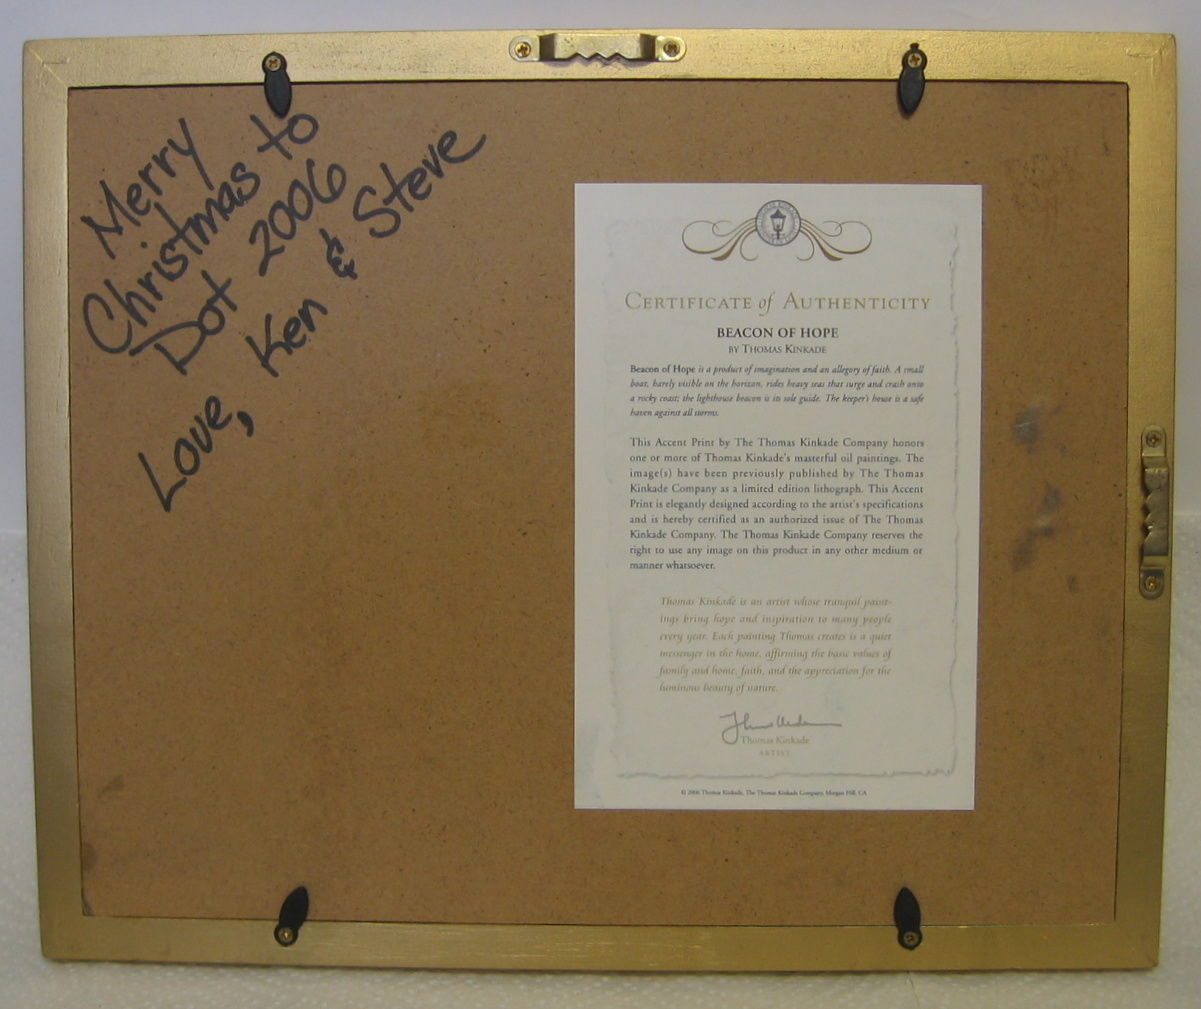 Merry
Christmas to
Dot 2006
Love, Ken & Steve
CERTIFICATE of AUTHENTICITY
BEACON OF HOPE
BY THOMAS KINKADE
Beacon of Hope is a product of imagination and an allegory of faith. A small
boat, barely visible on the horizon, rides heavy seas that surge and crash onto
a rocky coast; the lighthouse beacon is its sole guide. The keeper's house is a safe
haven against all storms.
This Accent Print by The Thomas Kinkade Company honors
one or more of Thomas Kinkade's masterful oil paintings. The
image(s) have been previously published by The Thomas
Kinkade Company as a limited edition lithograph. This Accent
Print is elegantly designed according to the artist's specifications
and is hereby certified as an authorized issue of The Thomas
Kinkade Company. The Thomas Kinkade Company reserves the
right to use any image on this product in any other medium or
manner whatsoever.
Thomas Kinkade is an artist whose tranquil paint-
ings bring hope and inspiration to many people
every year. Each painting Thomas creates is a quiet
messenger in the home, affirming the basic values of
family and home, faith, and the appreciation for the
luminous beauty of nature.
Thomas Kinkade
ARTIST
© 2006 Thomas Kinkade, The Thomas Kinkade Company, Morgan Hill, CA